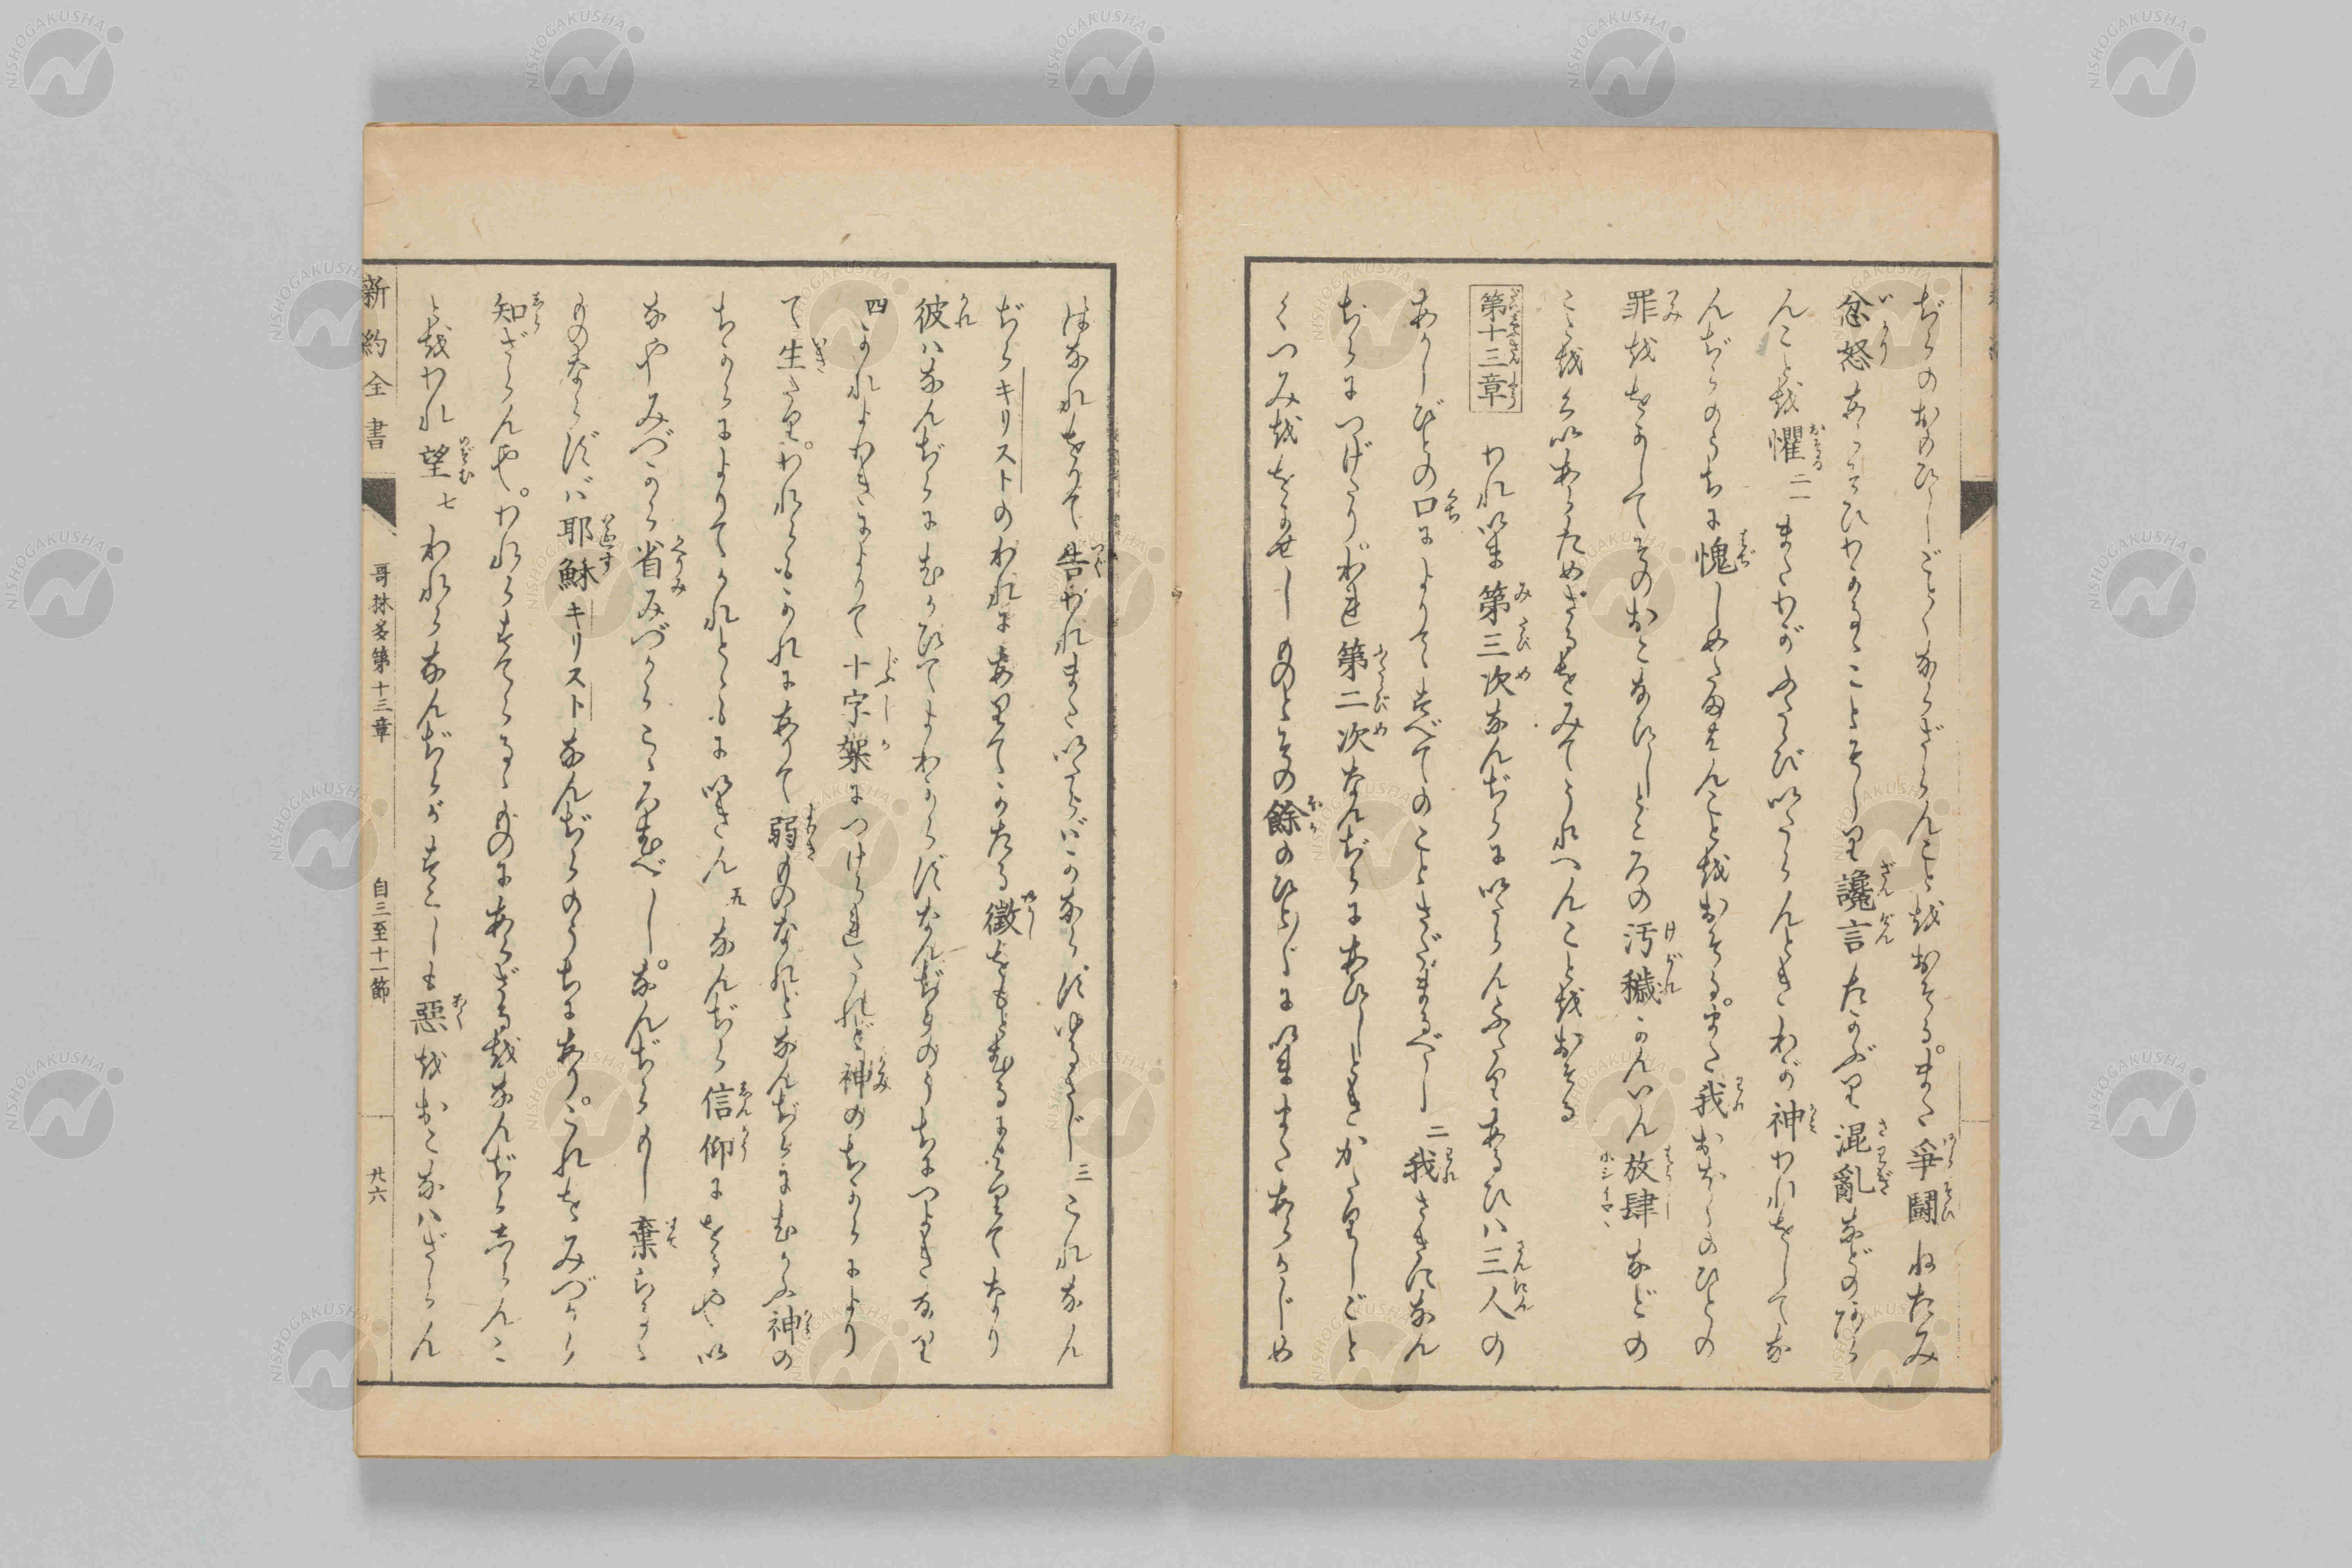 ぢらのおもひしごとくならざらんことをおそるまた爭鬪ねたみ
忿怒あらそひわかるゝことそしり讒言たかぶり混亂などのあら
んことを懼二一またわがふたゝびいたらんときわが神われをしてな
んぢらのうちに愧しめたまはんことをおそるまた我おほくのひとの
罪ををかしてそのおこなひしところの汚穢かんいん放肆などの
ことをくいあらためざるをみてうれへんことをおそる
第十三章 われいま第三次なんぢらにいたらんふたりあるひハ三人の
あかしびとの口によりてすべてのことさだまるべし二我さきになん
ぢらにつげたりわれ第二次なんぢらにあひしときかたりしごと
くつみををかせしものとその餘のひとびとにいままたあらかじめ
はなれをりて告われまたいたらバかならずゆるさじ三これなん
ぢらキリストのわれにありてかたる徴をもとむるによりてなり
彼ハなんぢらにむかひてよわからずなんぢらのうちにつよきなり
四かれよわきによりて十字架につけられたれど神のちからにより
て生たりわれらもかれにありて弱ものなれどなんぢらにむかふ神の
ちからによりてかれとともにいきん五なんぢら信仰にをるやい
なやみづから省みづからこゝろむべしなんぢらもし棄らるゝ
ものならずバ耶穌キリストなんぢらのうちにありこれをみづから
知ざらんやわれらすてらるゝものにあらざるをなんぢらしらんこ
とをわれ望七われらなんぢらがすこしも惡をおこなハざらん
新約全書 哥林多第十三章 自三至十一節 廿六